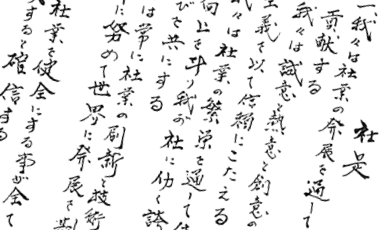 社是
一 我々は社業の発展を通して
貢献する
我々は誠意と熱意と創意の
主義を以て信頼にこたえる
我々は社業の繁栄を通して
向上を斗り我が社に仂く誇
びを共にする
は常に社業の刷新と技術
に努めて世界に発展を
社業を健全にする事が全て
すると確信する